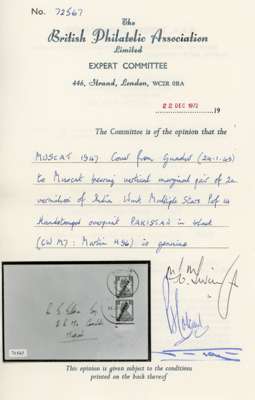 No. 72567
The
British Philatelic Association
Limited
EXPERT COMMITTEE
446, Strand, London, WC2R 0RA
22 DEC 1972
19
The Committee is of the opinion that the
MUSCAT 1947 Cover from Gwadur
to Muscat bearing vertical marginal pair of 2a
vermilion of India Wmk Multiple Stars
Handstamped overprint PAKISTAN in black
is genuine
72567
This opinion is given subject to the conditions
printed on the back thereof